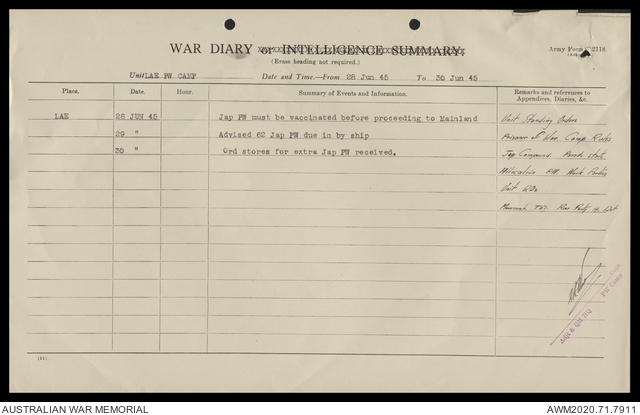 WAR DIARY or INTELLIGENCE SUMMARY.
(Erase heading not required.)
Army Form C2118.
Unit LAE PW CAMP Date and Time.—From 28 Jun 45 To 30 Jun 45
Place. Date. Hour. Summary of Events and Information. Remarks and references to Appendices, Diaries, &c.
LAE 28 JUN 45 Jap PW must be vaccinated before proceeding to Mainland
29 " Advised 62 Jap PW due in by ship
30 " Ord stores for extra Jap PW received.
Unit Standing Orders
Prisoner of War Camp Rules
Jap Compound Parade State
Allocation PW Work Parties
Unit
Rear Party
(51)
Adjt & QM HQ
PW Camp
AUSTRALIAN WAR MEMORIAL
AWM2020.71.7911